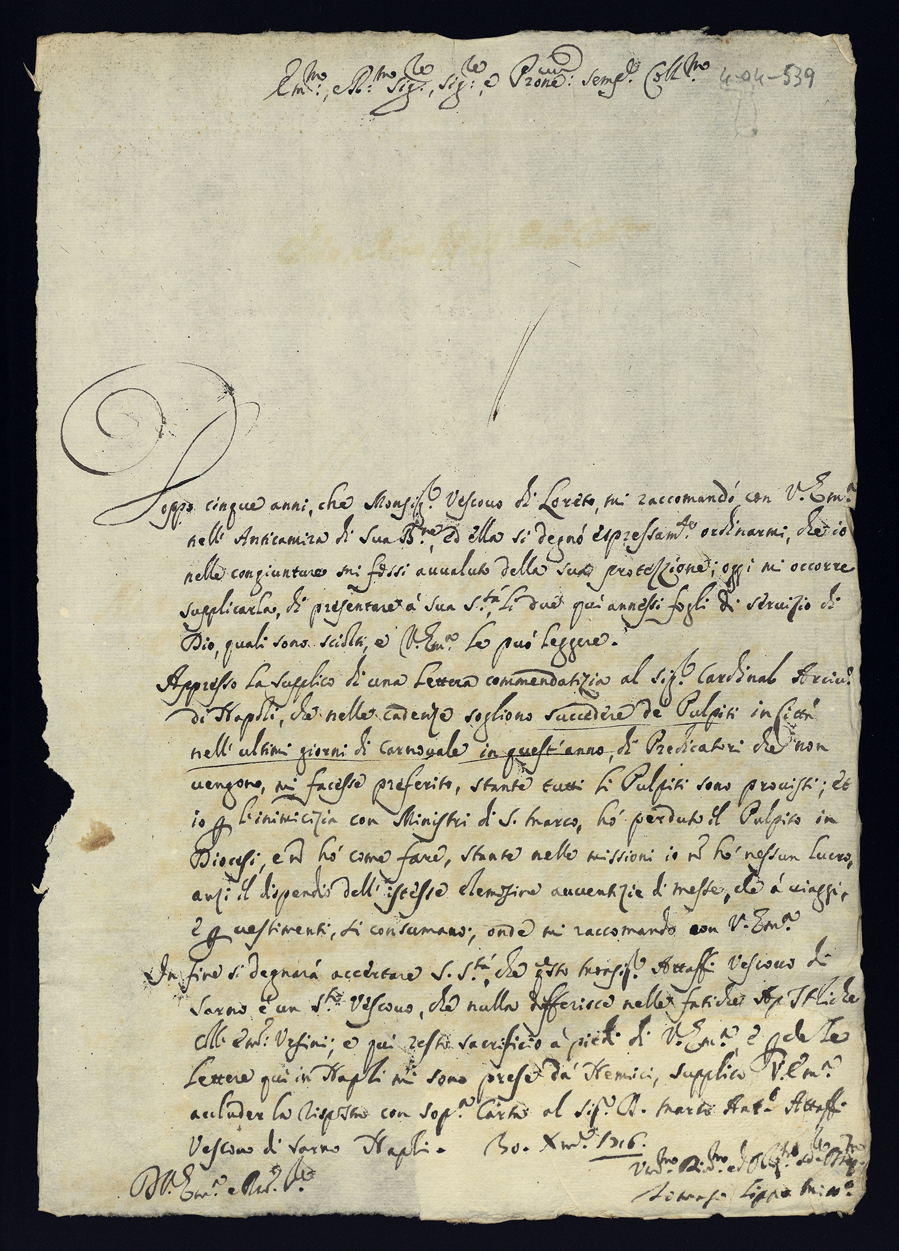 Em.mo, e R.mo Sig.re, Sig.re, e Prone: semp.e Coll.mo
4-04-539
Doppo cinque anni, che Monsig.r Vescouo di Loreto, mi raccomandó con V.Em.a
nell'Anticamera di Sua B.ne, ed ella si degnó espressam.te ordinarmi, che io
nelle congiunture mi fossi aualuto della sua protezzione; oggi mi occorre
supplicarla, di presentare á sua S.tá, li due qui annessi fogli di seruizio di
Dio, quali sono sciolti, e V.Em.a le puó leggere.
Appresso la supplico di una Lettera commendatizia al sig.r Cardinal Arciu.o
di Napoli, che nelle cadenze sogliono succedere de Pulpiti in Cittá
nell'ultimi giorni di Carnouale in quest'anno, di Predicatori che non
uengono, mi facesse preferito, stante tutti li Pulpiti sono prouisti; et
io p l'inimicizia con Ministri di S. Marco, hó perduto il Pulpito in
Diocesi, e nō hó come fare, stante nelle missioni io nō hó nessun lucro,
anzi il dispendio dell'istesse elemosine auuentizie di messe, che á uiaggi,
e p uestimenti, si consumano; onde mi raccomando con V.Em.a
In fine si degnará accertare S.S.tá, che q̄sto Monsig.r Attaffi Vescouo di
Sarno é un S.to Vescouo, che nulla differisce nelle fatiche Ap̄stliche
dell' Em: Vrsini; e qui resto sacrificio á piedi di V.Em.a, e p che le
Lettere qui in Napli mi sono prese dá Nemici, supplico V.Em.a
accluder la risposta con sop.a carta al sig.r D. Marco Ant.o Attaffi
Vescouo di Sarno Napli. 30. Xmb.e 1716.
D V.Em.a e Re.